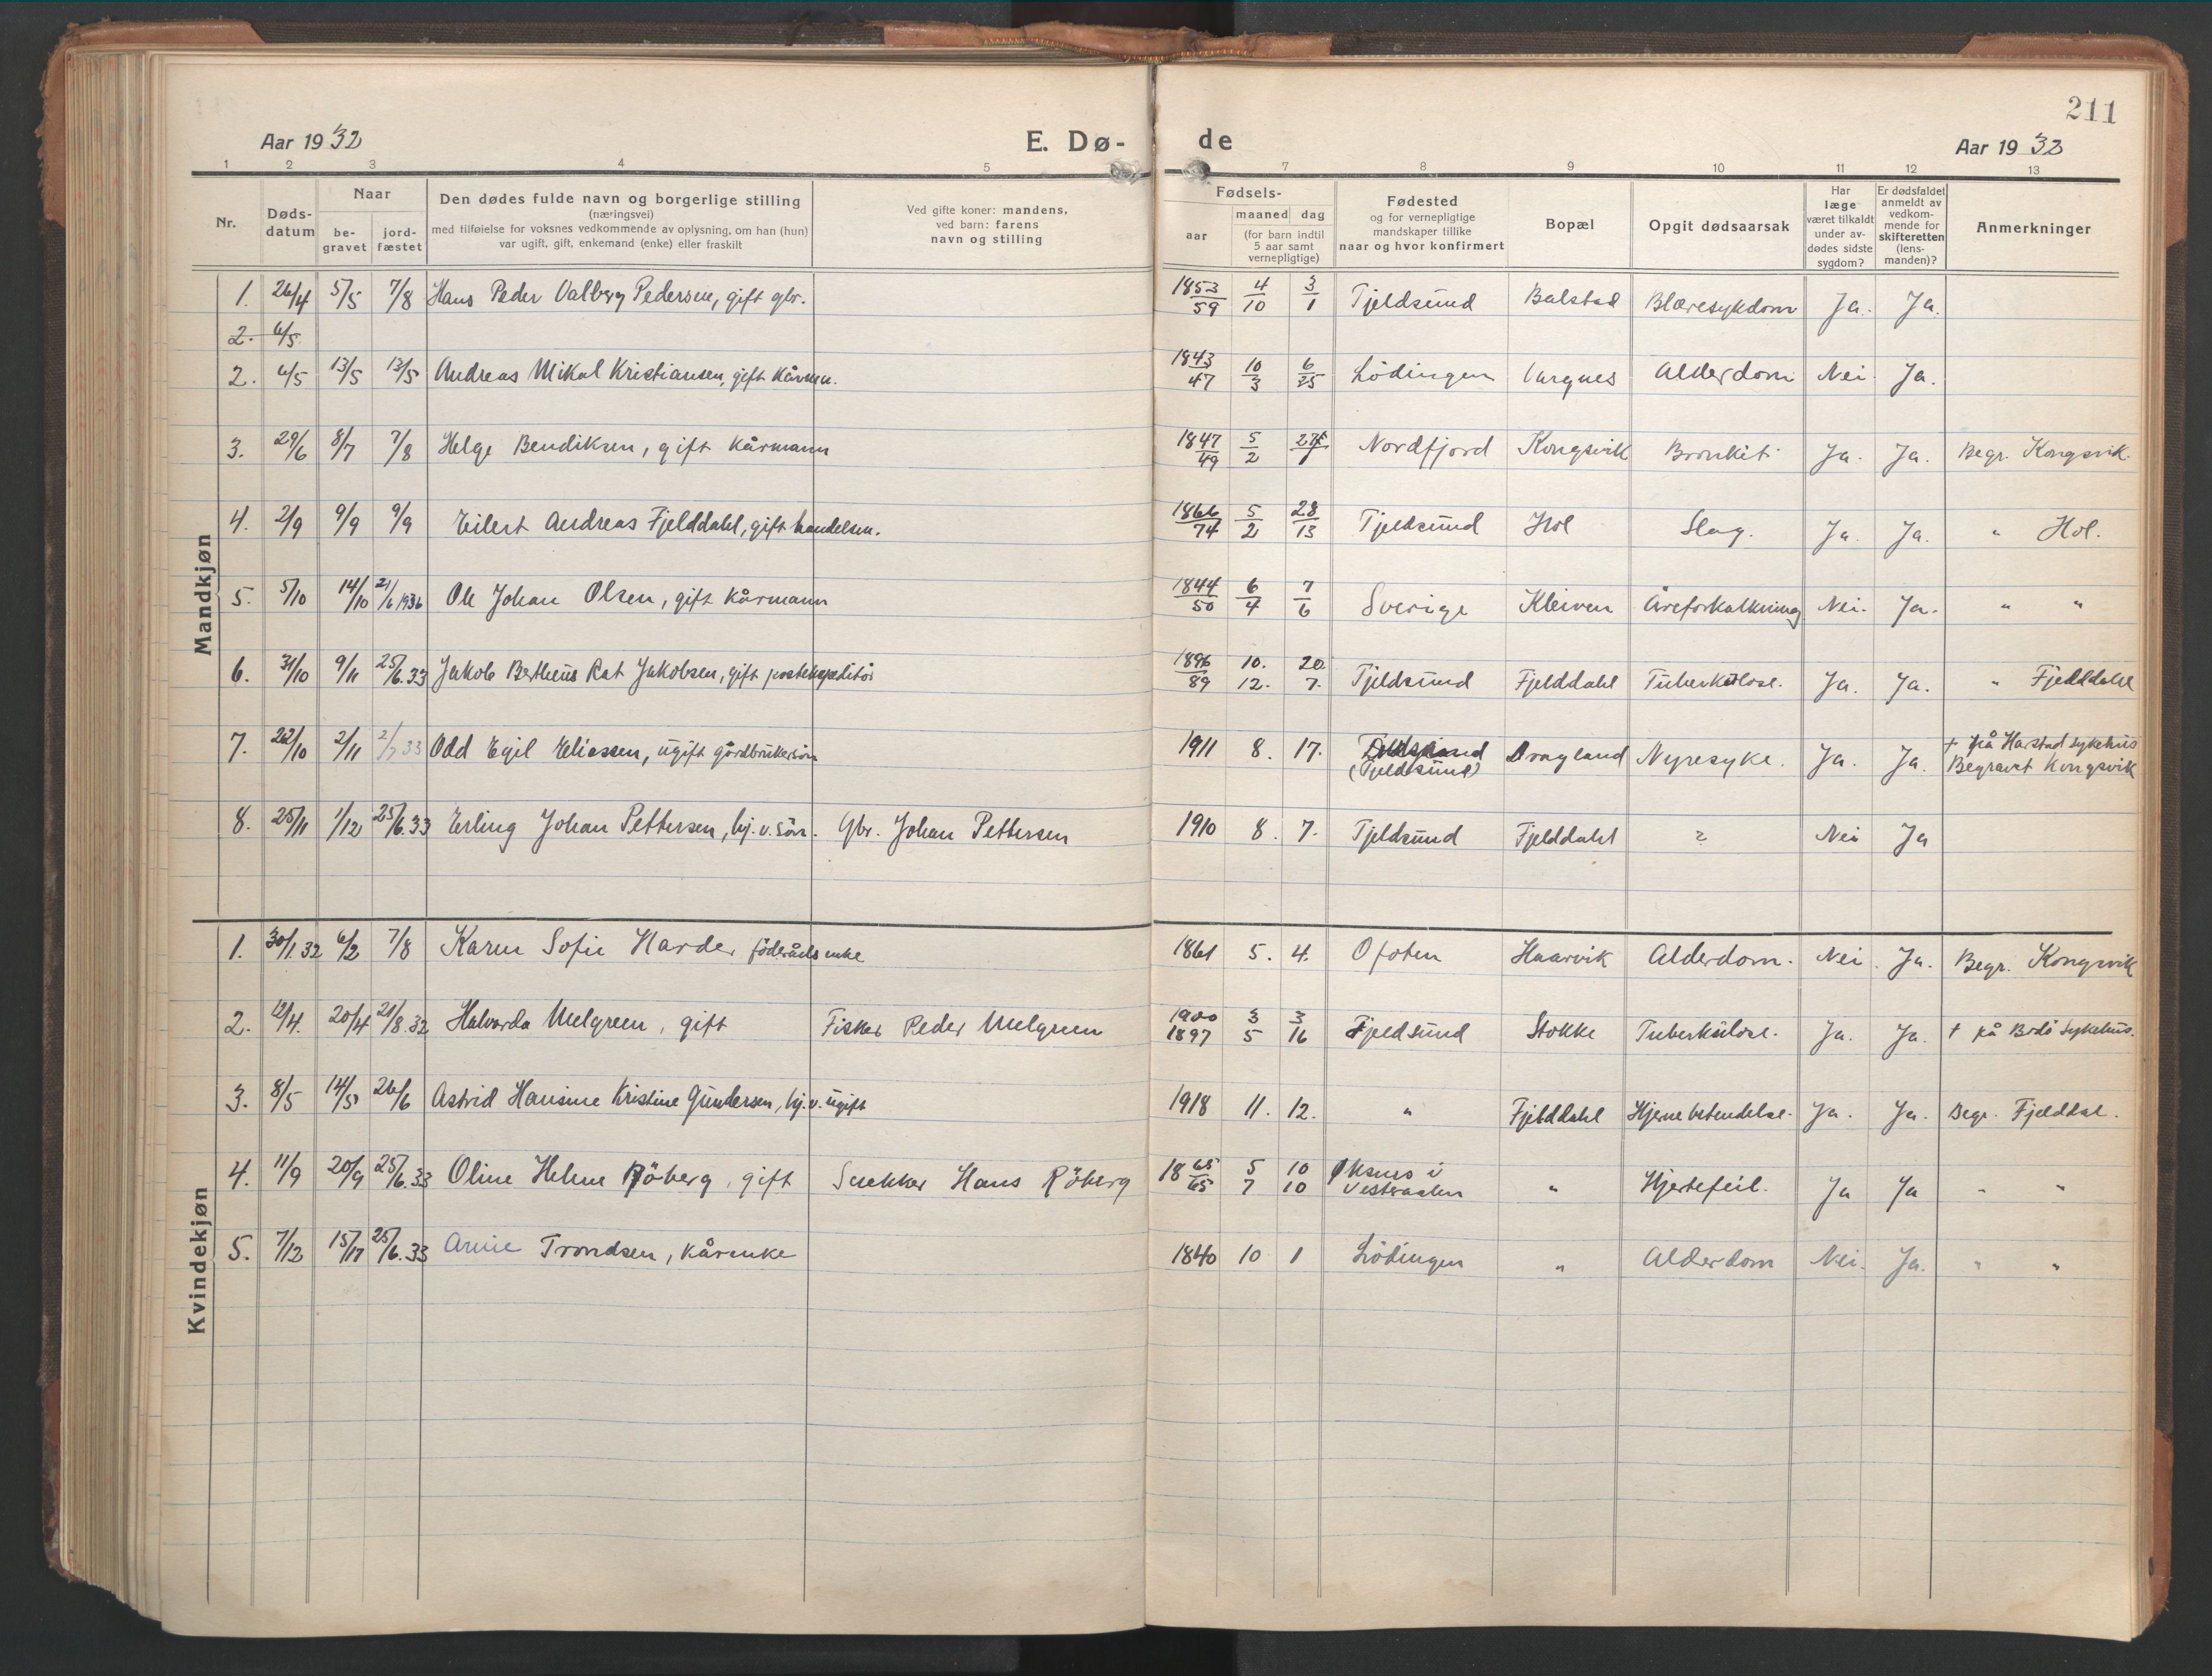 211
Aar 1932 E. Dø- de Aar 1932
1 2 3 4 5 7 8 9 10 11 12 13
Nr.
Døds-
datum
Naar
be-
gravet
jord-
fæstet
Den dødes fulde navn og borgerlige stilling
(næringsvei)
med tilføielse for voksnes vedkommende av oplysning, om han (hun)
var ugift, gift, enkemand (enke) eller fraskilt
Ved gifte koner: mandens,
ved barn: farens
navn og stilling
Fødsels-
aar
maaned dag
(for barn indtil
5 aar samt
vernepligtige)
Fødested
og for vernepligtige
mandskaper tillike
naar og hvor konfirmert
Bopæl
Opgit dødsaarsak
Har
læge
været tilkaldt
under av-
dødes sidste
sygdom?
Er dødsfaldet
anmeldt av
vedkom-
mende for
skifteretten
(lens-
manden)?
Anmerkninger
Mandkjøn
1. 26/4 5/5 7/8 Hans Peder Valberg Pedersen, gift gbr. 1853/59 4/10 3/1 Tjeldsund Balstad Blæresykdom Ja. Ja.
2. 6/5
2. 6/5 13/5 13/5 Andreas Mikal Kristiansen, gift kårmn. 1843/47 10/3 6/25 Lödingen Vargnes Alderdom Nei Ja.
3. 29/6 8/7 7/8 Helge Bendiksen, gift kårmann 1847/49 5/2 Nordfjord Kongsvik Bronkit Ja. Ja. Begr. Kongsvik.
4. 2/9 9/9 9/9 Eilert Andreas Fjelddahl, gift handelsm. 1866/74 5/2 28/13 Tjeldsund Hol Slag. Ja. Ja. " Hol.
5. 5/10 14/10 21/6 1936 Ole Johan Olsen, gift kårmann 1844/50 6/4 7/6 Sverige Kleiven Åreforkalkning Nei. Ja. " "
6. 31/10 9/11 25/6.33 Jakob Bertheus Rat Jakobsen, gift postekspeditör 1896/89 10. 12. 20. 7. Tjeldsund Fjelddahl Tuberkulose. Ja. Ja. " Fjelddahl
7. 22/10 2/11 2/7 33 Odd Egil Eliassen, ugift gårdbrukersön 1911 8. 17. (Tjeldsund) Dragland Nyresyke. Ja. Ja. † på Harstad sykehus
Begravet Kongsvik
8. 25/11 1/12 25/6.33 Erling Johan Pettersen, hj.v. sön. Gbr. Johan Pettersen 1910 8. 7. Tjeldsund Fjelddahl ? Nei Ja
Kvindekjøn
1. 30/1.32 6/2 7/8 Karen Sofie Harder föderåds enke 1861 5. 4. Ofoten Haarvik Alderdom. Nei. Ja. Begr. Kongsvik
2. 12/4. 20/4 21/8.32 Halvarda Melgreen, gift Fisker Peder Melgreen 1900 3 3
1897 5 16 Tjeldsund Stokke Tuberkulose. Ja. Ja. † på Bodö Sykehus.
3. 8/5 14/5 26/6 Astrid Hansine Kristine Gundersen, hj.v. ugift 1918 11. 12. " Fjelddahl Hjernebetendelse. Ja. Ja. Begr. Fjelddal.
4. 11/9 20/9 25/6.33 Oline Helene Röberg, gift Snekker Hans Röberg 1865/65 5 7 10 10 Øksnes i
Vesteraalen " Hjertefeil. Ja Ja " "
5. 7/12 15/17 25/6.33 Anne Trondsen, kårenke 1840 10 1 Lödingen " Alderdom Nei. Ja. " "